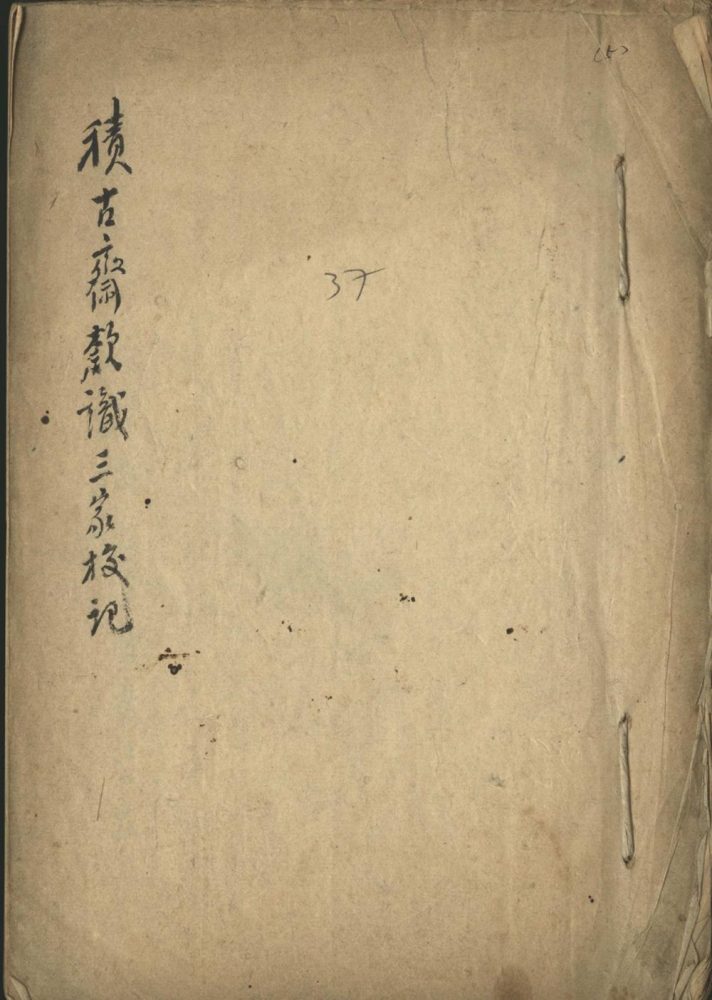 積古齋欵識三家校記
37
(5)